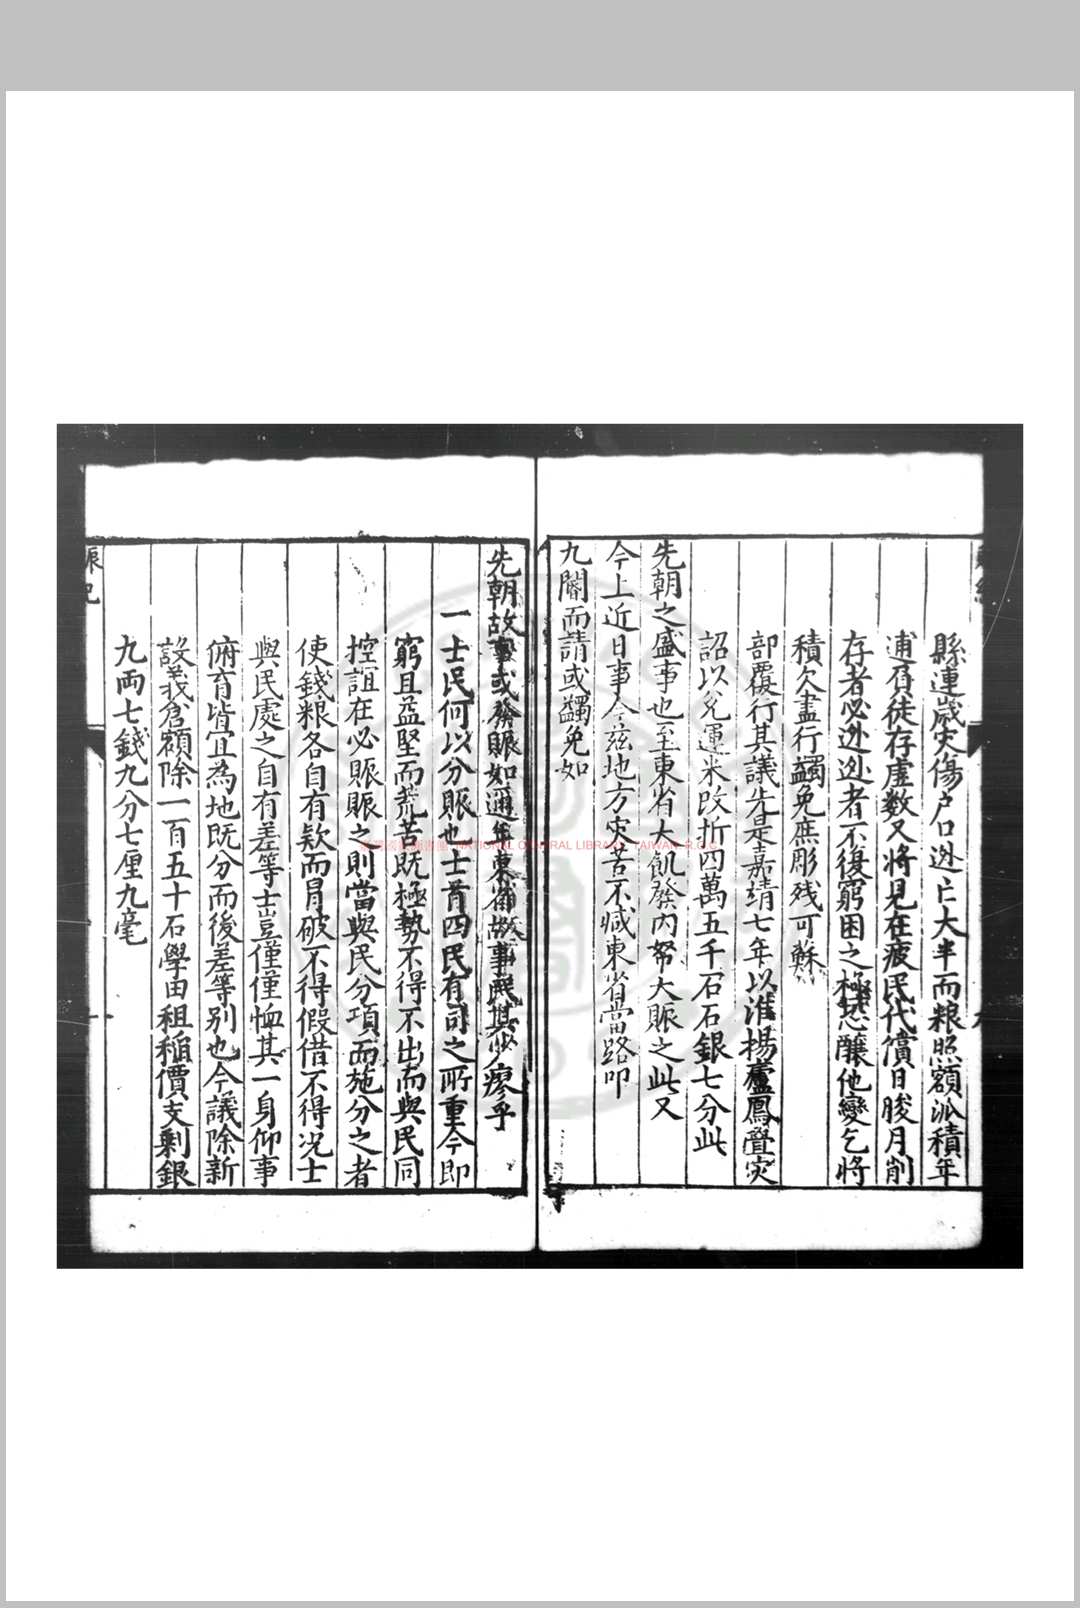 縣連歲灾傷户口迯亡大半而粮照額派積年
逋負徒存虛數又將見在疲民代償日朘月削
存者必迯迯者不復窮困之極恐釀他變乞將
積欠盡行蠲免庶彫残可蘇
部覆行其議先是嘉靖七年以淮揚廬鳳疊灾
詔以兊運米改折四萬五千石石銀七分此
先朝之盛事也至東省大飢發内帑大賑之此又
今上近日事今兹地方灾苦不臧東省當路叩
九閽而請或蠲免如
先朝故事或發賑如邇年東省故事民其少瘳乎
一士民何以分賑也士首四民有司之所重今即
窮且益堅而荒苦既極勢不得不出而與民同
控誼在必賑賑之則當與民分項而施分之者
使錢粮各自有欵而冐破不得假借不得况士
與民處之自有差等士豈僅僅恤其一身仰事
俯育皆宜為地既分而後差等别也今議除新
設義倉額除一百五十石學田租稲價支剩銀
九両七錢九分七厘九毫
賑紀
NATIONAL CENTRAL LIBRARY, TAIWAN R.O.C